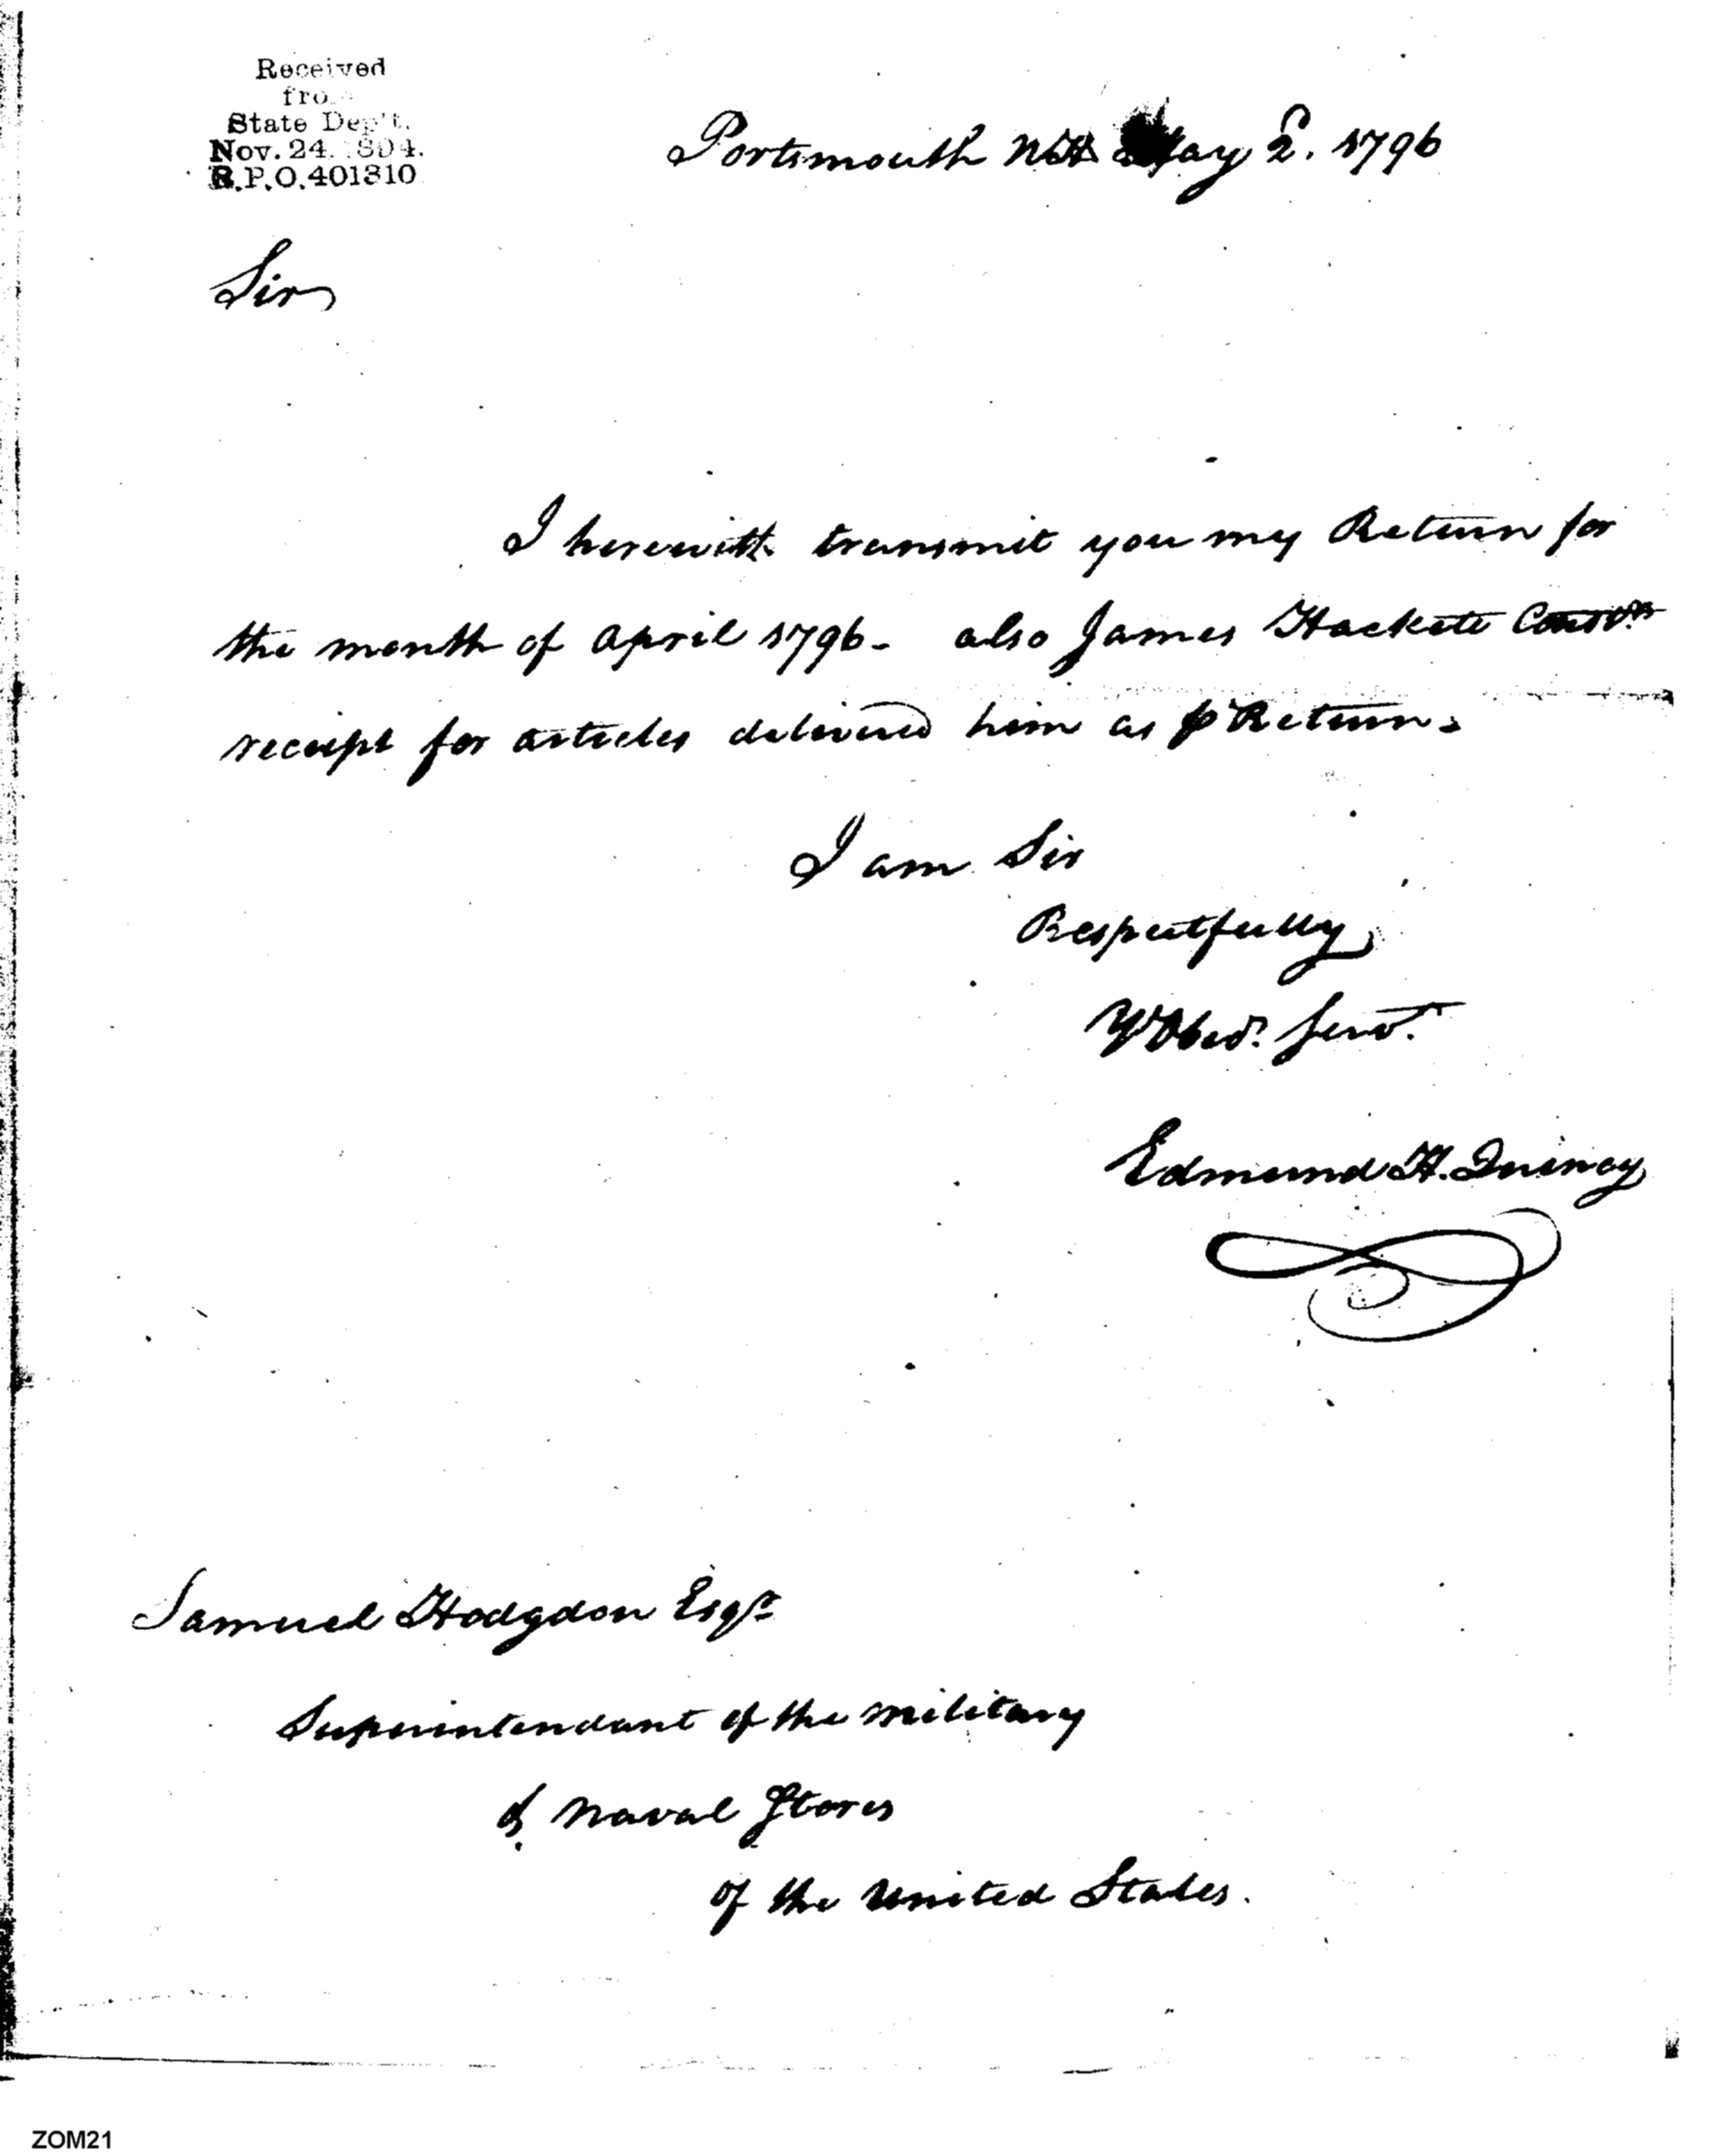 Received
from
State Dep't.
Nov. 24. 1894.
R.P.O. 401310
Portsmouth NH May 2. 1796
Sir
I herewith transmit you my Return for
the month of April 1796 - also James Hackett
receipt for articles delivered him as ⅌ Return -
I am Sir
Respectfully
Yr Obed. Servt.
Edmund H. Quincy
Samuel Hodgdon Esqr
Superintendant of the Military
& Naval Stores
of the United States.
ZOM21